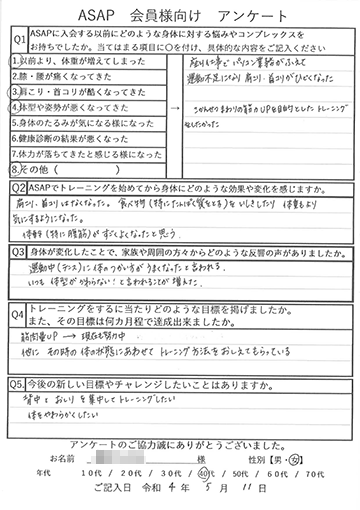 ASAP　会員様向け　アンケート
Q1 ASAPに入会する以前にどのような身体に対する悩みやコンプレックスを
お持ちでしたか。当てはまる項目に〇を付け、具体的な内容をご記入ください
1.以前より、体重が増えてしまった
2.膝・腰が痛くなってきた
3.肩こり・首コリが酷くなってきた
4.体型や姿勢が悪くなってきた
5.身体のたるみが気になる様になった
6.健康診断の結果が悪くなった
7.体力が落ちてきたと感じる様になった
8.その他（　　　　　　）
→
座り仕事でパソコン業務がふえて
運動不足になり肩コリ・首コリがひどくなった
こかんせつまわりの筋力UPを目的としたトレーニング
をしたかった
Q2 ASAPでトレーニングを始めてから身体にどのような効果や変化を感じますか。
肩コリ、首コリはなくなった。食べ物(特にたんぱく質をとる)をいしきしたり 体重もより
気にするようになった。
体幹(特に腹筋)がすごくよくなったと思う。
Q3 身体が変化したことで、家族や周囲の方々からどのような反響の声がありましたか。
運動中(テニス)に体のつかい方がうまくなったと言われる。
いつも体型がかわらない!と言われることが増えた。
Q4 トレーニングをするに当たりどのような目標を掲げましたか。
また、その目標は何カ月程で達成出来ましたか。
筋肉量UP → 現在も努力中
他に その時の体の状態にあわせてトレーニング方法をおしえてもらっている
Q5. 今後の新しい目標やチャレンジしたいことはありますか。
背中とおしりを集中してトレーニングしたい
体をやわらかくしたい
アンケートのご協力誠にありがとうございました。
お名前　　　　　　様　　性別【男・女】
年代　10代 / 20代 / 30代 / 40代 / 50代 / 60代 / 70代
ご記入日　令和 4 年 5 月 11 日